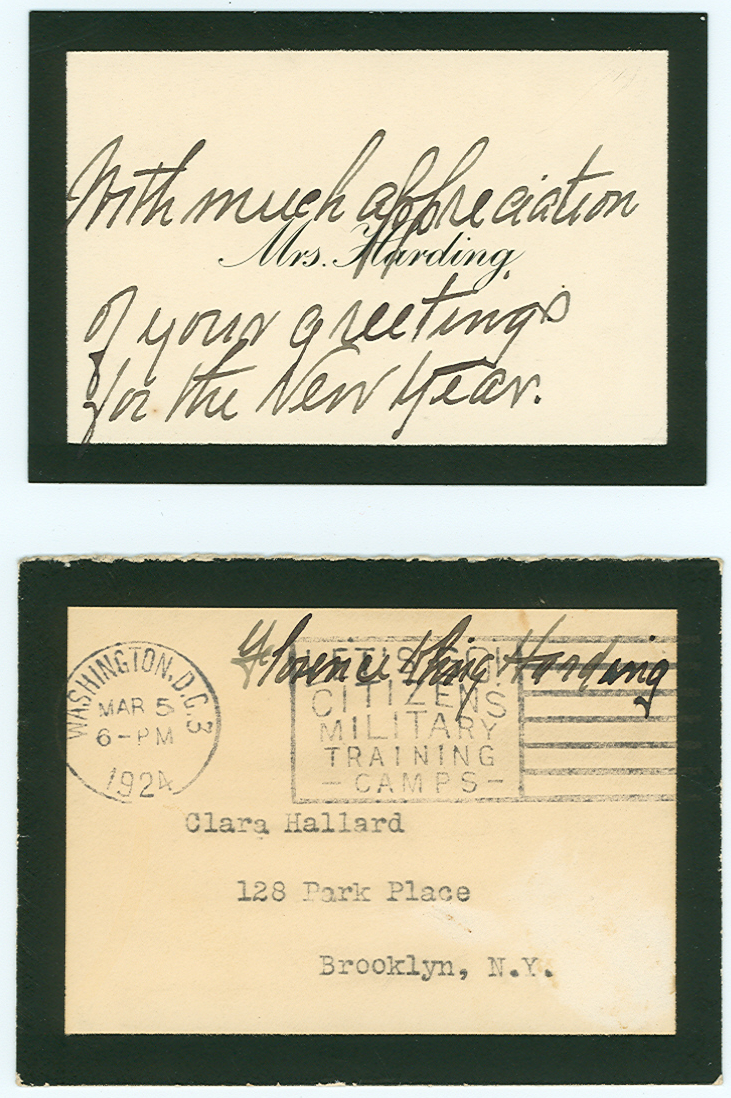 With much appreciation
Mrs. Harding.
of your greetings
for the New Year.
Florence Kling Harding
WASHINGTON, D.C. 3
MAR 5
6-PM
1924
LET'S GO!
CITIZENS
MILITARY
TRAINING
-CAMPS-
Clara Hallard
128 Park Place
Brooklyn, N.Y.